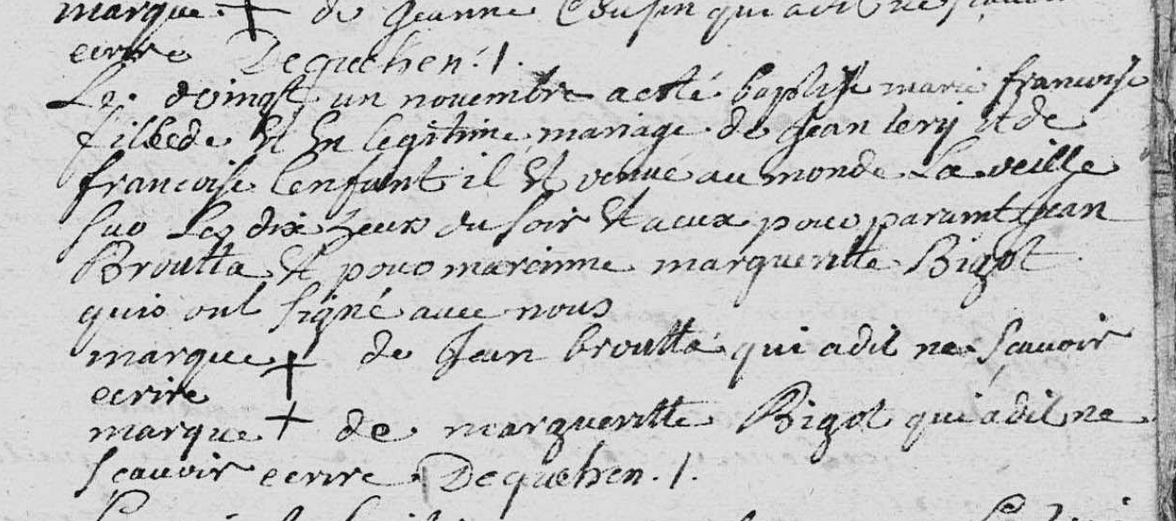 marque + de Jeanne qui adit ne scavoir
ecrire Dequehen .1.
Le vingt un novembre a esté baptisé marie francoise
fillee de Et En legitime mariage de Jean lery Et de
francoise L'enfant il Et venue au monde La veille
sur Les dix heur du soir Et a eux pour parain Jean
Broutta Et pour marainne marguerittte Bigot
quis ont signé avec nous
marque + de Jean broutta qui a dit ne scavoir
ecrire
marque + de marguerittte Bigot qui a dit ne
scavoir ecrire Dequehen .1.